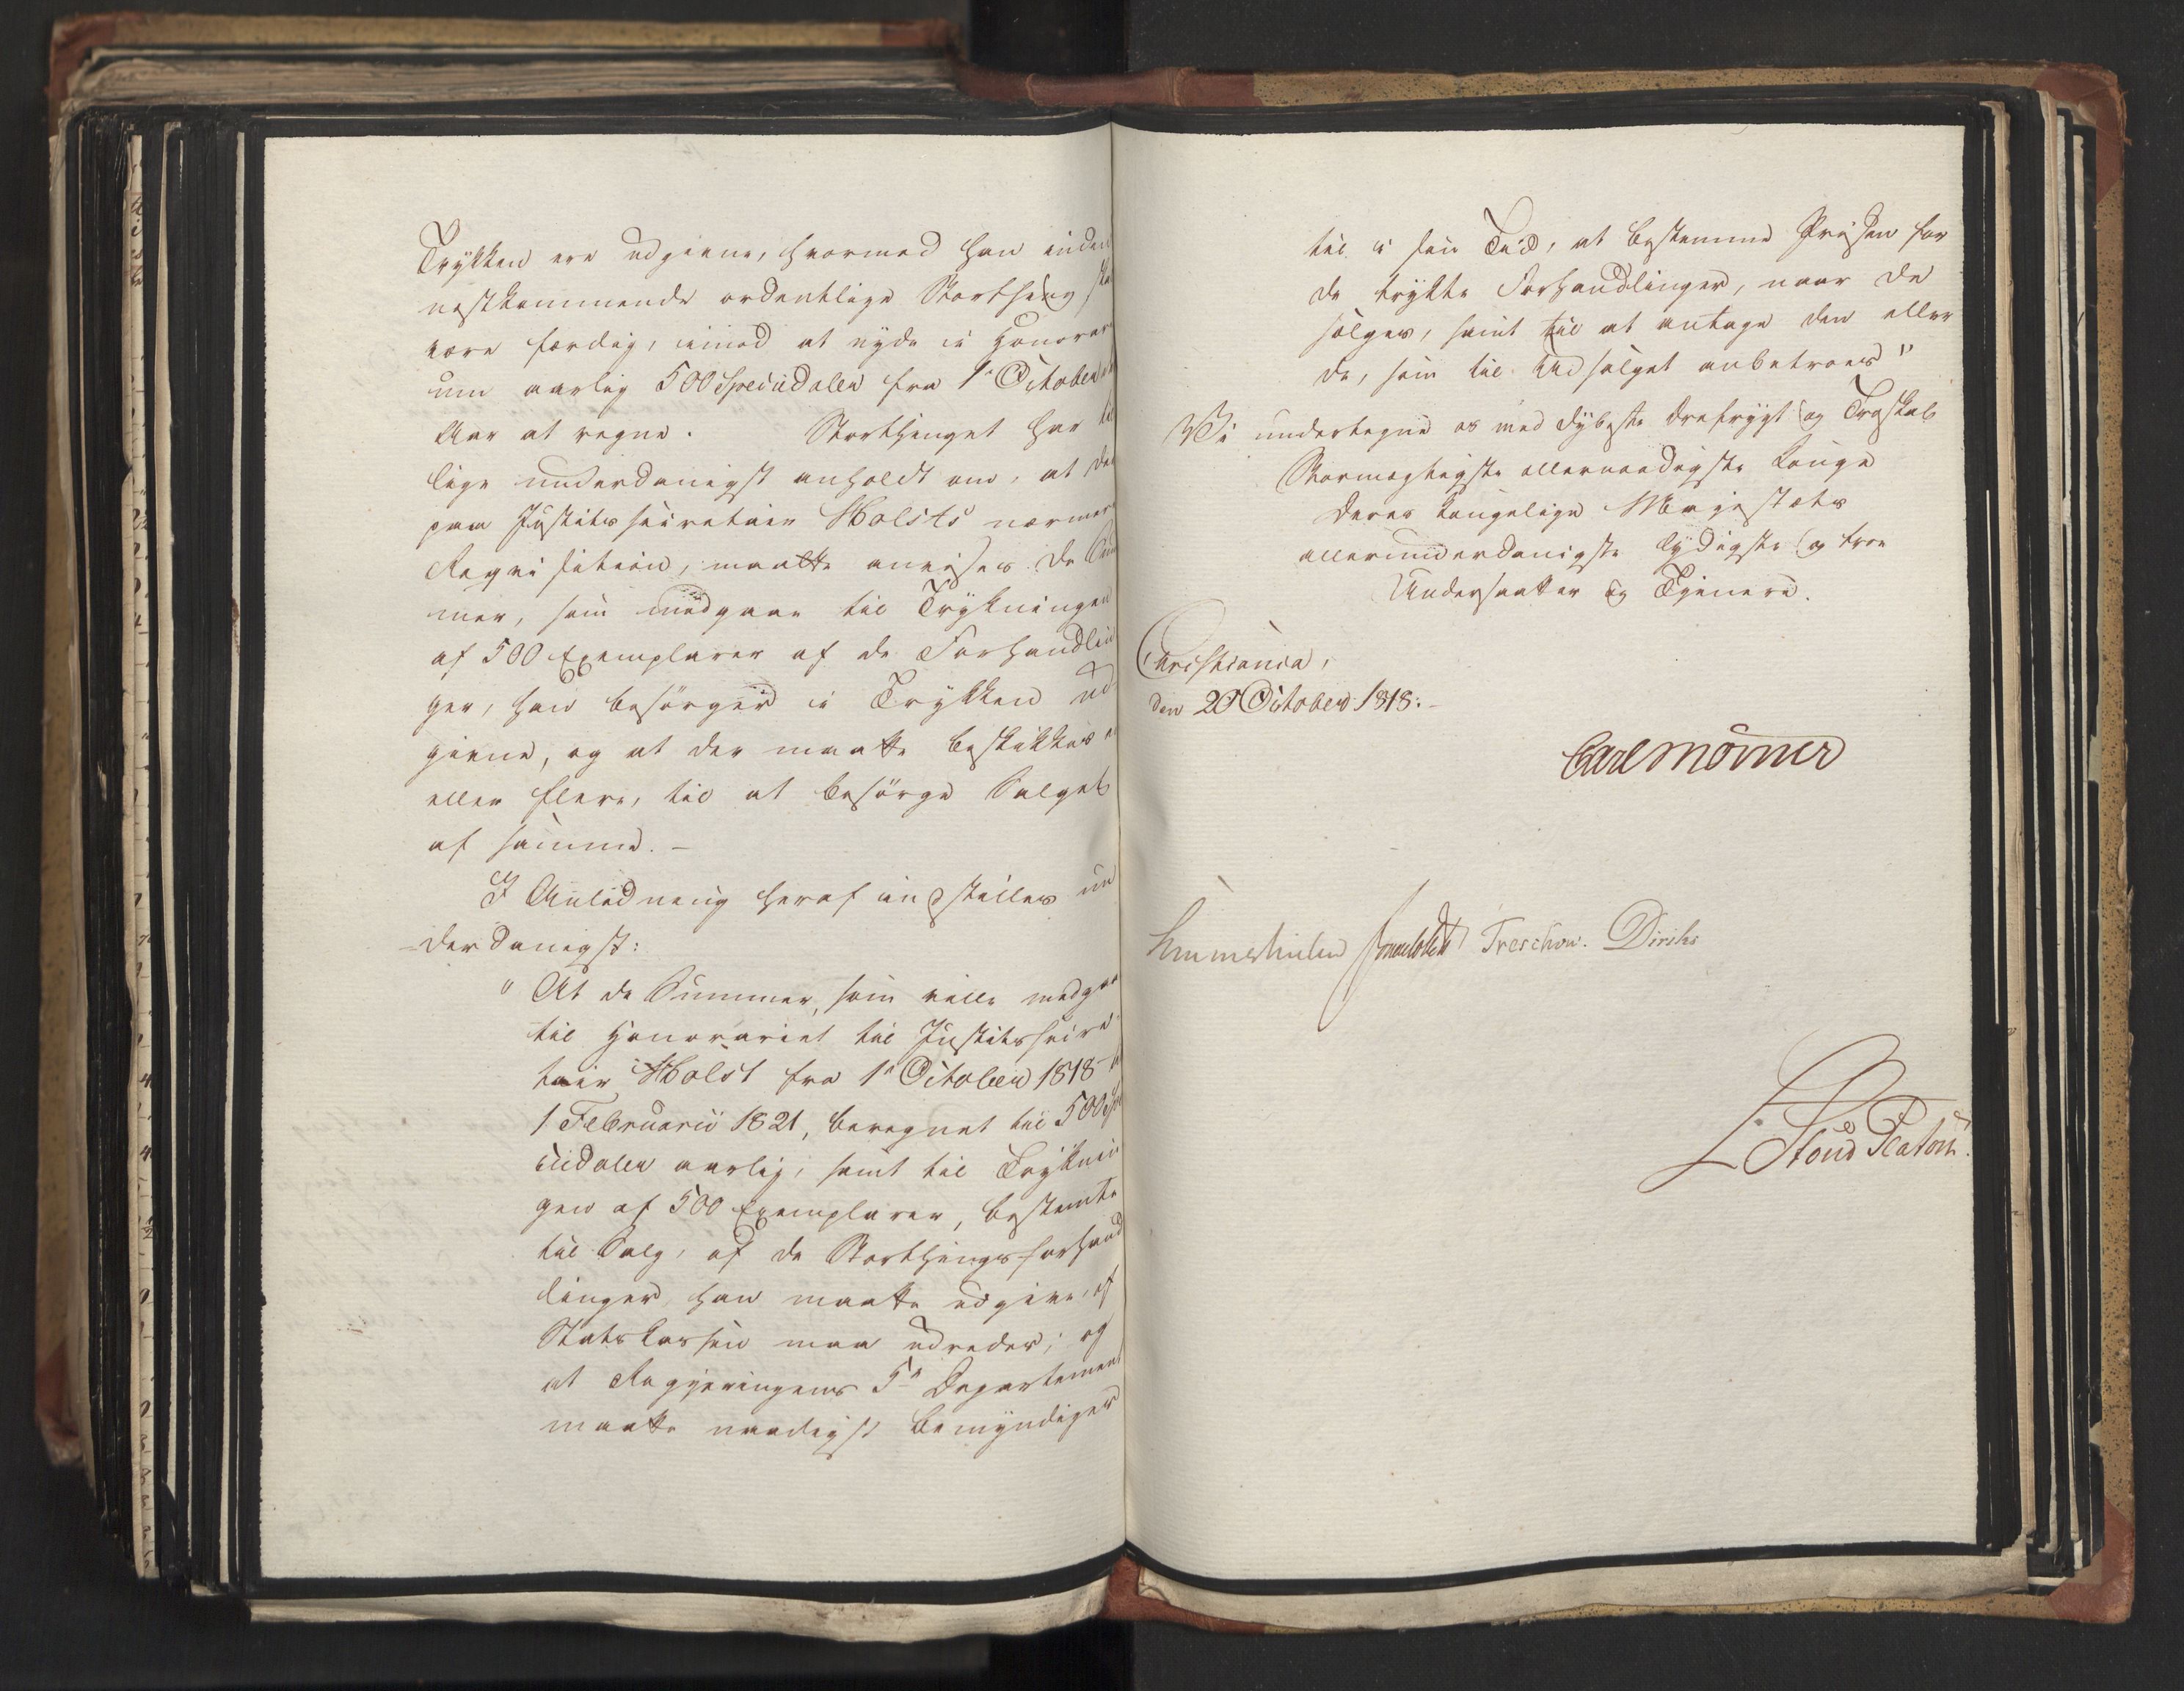 Trykken ere udgivne, hvormed han inden
nestkommende ordentlige Storthing ska
være færdig, imod at nyde i Honorari
um aarlig 500 Speciedaler fra 1e October
Aar at regne. Storthinget har til
lige underdanigst anholdt om, at der
paa Justitssecretair Holsts nærmere
Reqvisition, maatte anvises de Sum
mer, som medgaae til Trykningen
af 500 Exemplarer af de Forhandlin
ger, han besörger i Trykken ud
givne, og at der maatte beskikkes en
eller flere, til at besörge Salget
af samme. –
I Anledning heraf indstilles un
derdanigst:
" At de Summer, som ville medgaae
til Honorariet til Justitssecre
tair Holst fra 1e October 1818 til
1 Februarii 1821, beregnet til 500 Spe
ciedaler aarlig, samt til Tryknin
gen af 500 Exemplarer, bestemte
til Salg, af de Storthingsforhand
linger han maatte udgive, af
Statskassen maa udredes; og
at Regjeringens 5e Departement
maatte naadigst bemyndiges
til i sin Tid, at bestemme Prisen for
de trykte Forhandlinger, naar de
sælges, samt til at antage den eller
de, som til Udsalget anbetroes"
Vi undertegne os med dybeste Ærefrygt og Troskab
Stormægtigste allernaadigste Konge
Deres Kongelige Majestæts
allerunderdanigste lydigste og troe
Undersaatter og Tjenere.
Christiania,
den 20 October 1818. –
Carl Mörner
Sommerhielm Treschow. Diriks
L Stoud Platou